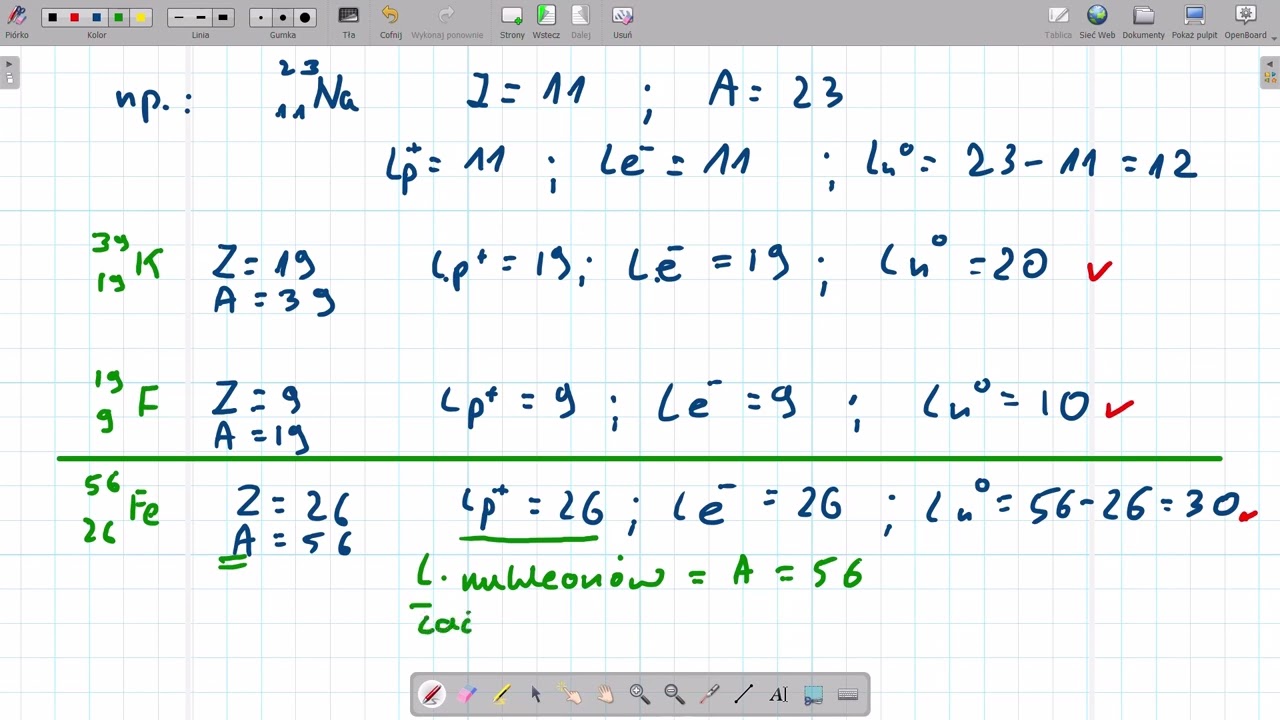 Piórko Kolor Linia Gumka Tła Cofnij Wykonaj ponownie Strony Wstecz Dalej Usuń Tablica Sieć Web Dokumenty Pokaż pulpit OpenBoard
np.: ²³₁₁Na Z = 11 ; A = 23
Lp⁺ = 11 ; Le⁻ = 11 ; Ln⁰ = 23 - 11 = 12
³⁹₁₉K Z = 19 L.p⁺ = 19 ; L.e⁻ = 19 ; Ln⁰ = 20 ✓
A = 39
¹⁹₉F Z = 9 Lp⁺ = 9 ; Le⁻ = 9 ; Ln⁰ = 10 ✓
A = 19
⁵⁶₂₆Fe Z = 26 Lp⁺ = 26 ; Le⁻ = 26 ; Ln⁰ = 56 - 26 = 30 ✓
A = 56
L. nukleonów = A = 56
AI